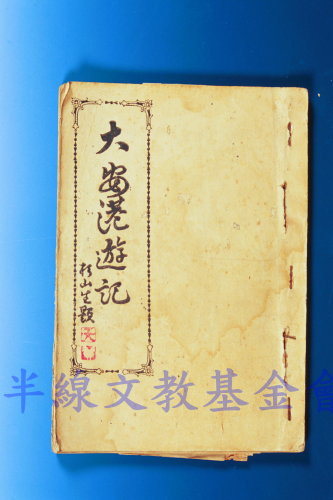 大安港遊記
杉山生題
半線文教基金會